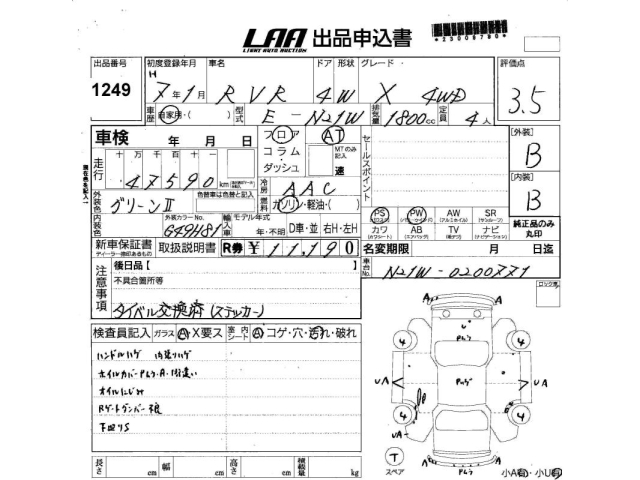 LAA 出品申込書
LIGHT AUTO AUCTION
出品番号 初度登録年月 車名 ドア 形状 グレード 評価点
1249 H 7年1月 RVR 4W X 4WD 3.5
車歴 自家用・( ) 型式 E-N21W 排気量 1800cc 定員 4人
車検 年 月 日 フロア AT セールスポイント [外装]
コラム MTのみ記入 B
ダッシュ 速
走行 十万千百十一 47590km
冷房 AAC [内装]
外装色 グリーンII 色替車は色替と記入 燃料 ガソリン・軽油・( ) B
内装色 外装カラーNo. G49H81 輸入車 モデル年式 年・不明 D車・並 右H・左H
PS PW AW SR
カワ AB TV ナビ 純正品のみ丸印
新車保証書 取扱説明書 R券 ¥11,190 名変期限 月 日迄
ディーラー捺印あるもの
車台No. N21W-0200771
注意事項 後日品[ ]
不具合箇所等
タイベル交換済(ステッカー)
検査員記入 ガラス A・X要ス 室内シート A コゲ・穴・汚れ・破れ
ハンドルハゲ
オイルにじみ
下回りS
4 4
UA UA
4 4
UA
T
スペア
A A
小A 小U
長さ cm 幅 cm 高さ cm 積載量 kg